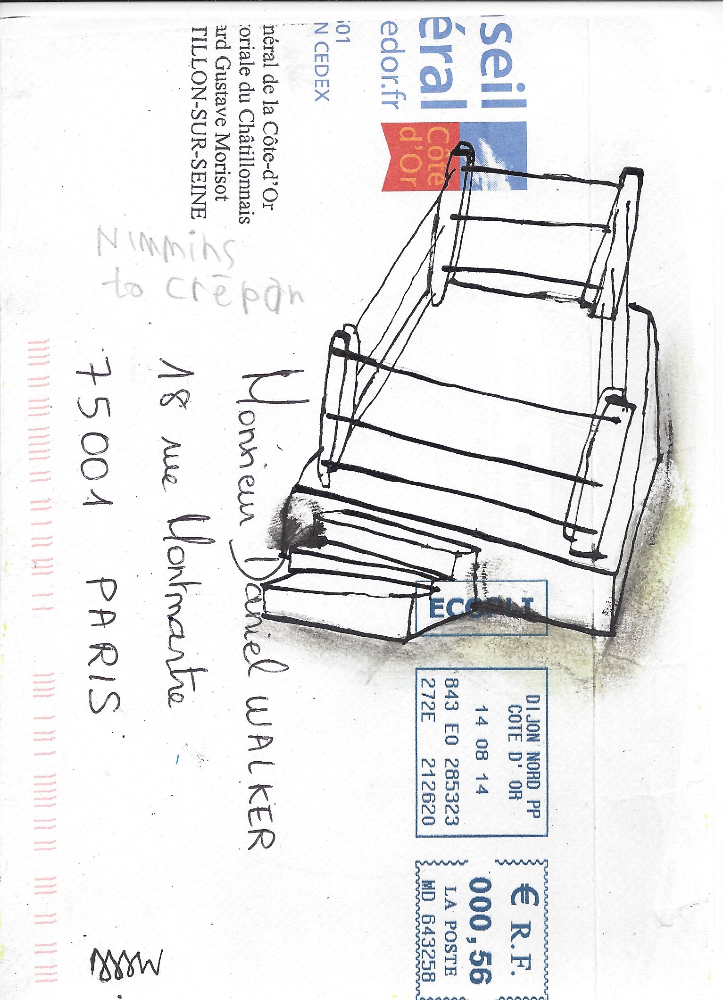 seil
éral
edor.fr
Côte
d'Or
601
N CEDEX
néral de la Côte-d'Or
oriale du Châtillonnais
ard Gustave Morisot
TILLON-SUR-SEINE
Nimmins
to crēpan
Monsieur Daniel WALKER
18 rue Montmartre
75001 PARIS
DIJON NORD PP
COTE D'OR
14 08 14
843 E0 285323
272E 212620
€ R.F.
000,56
LA POSTE
MD 643258